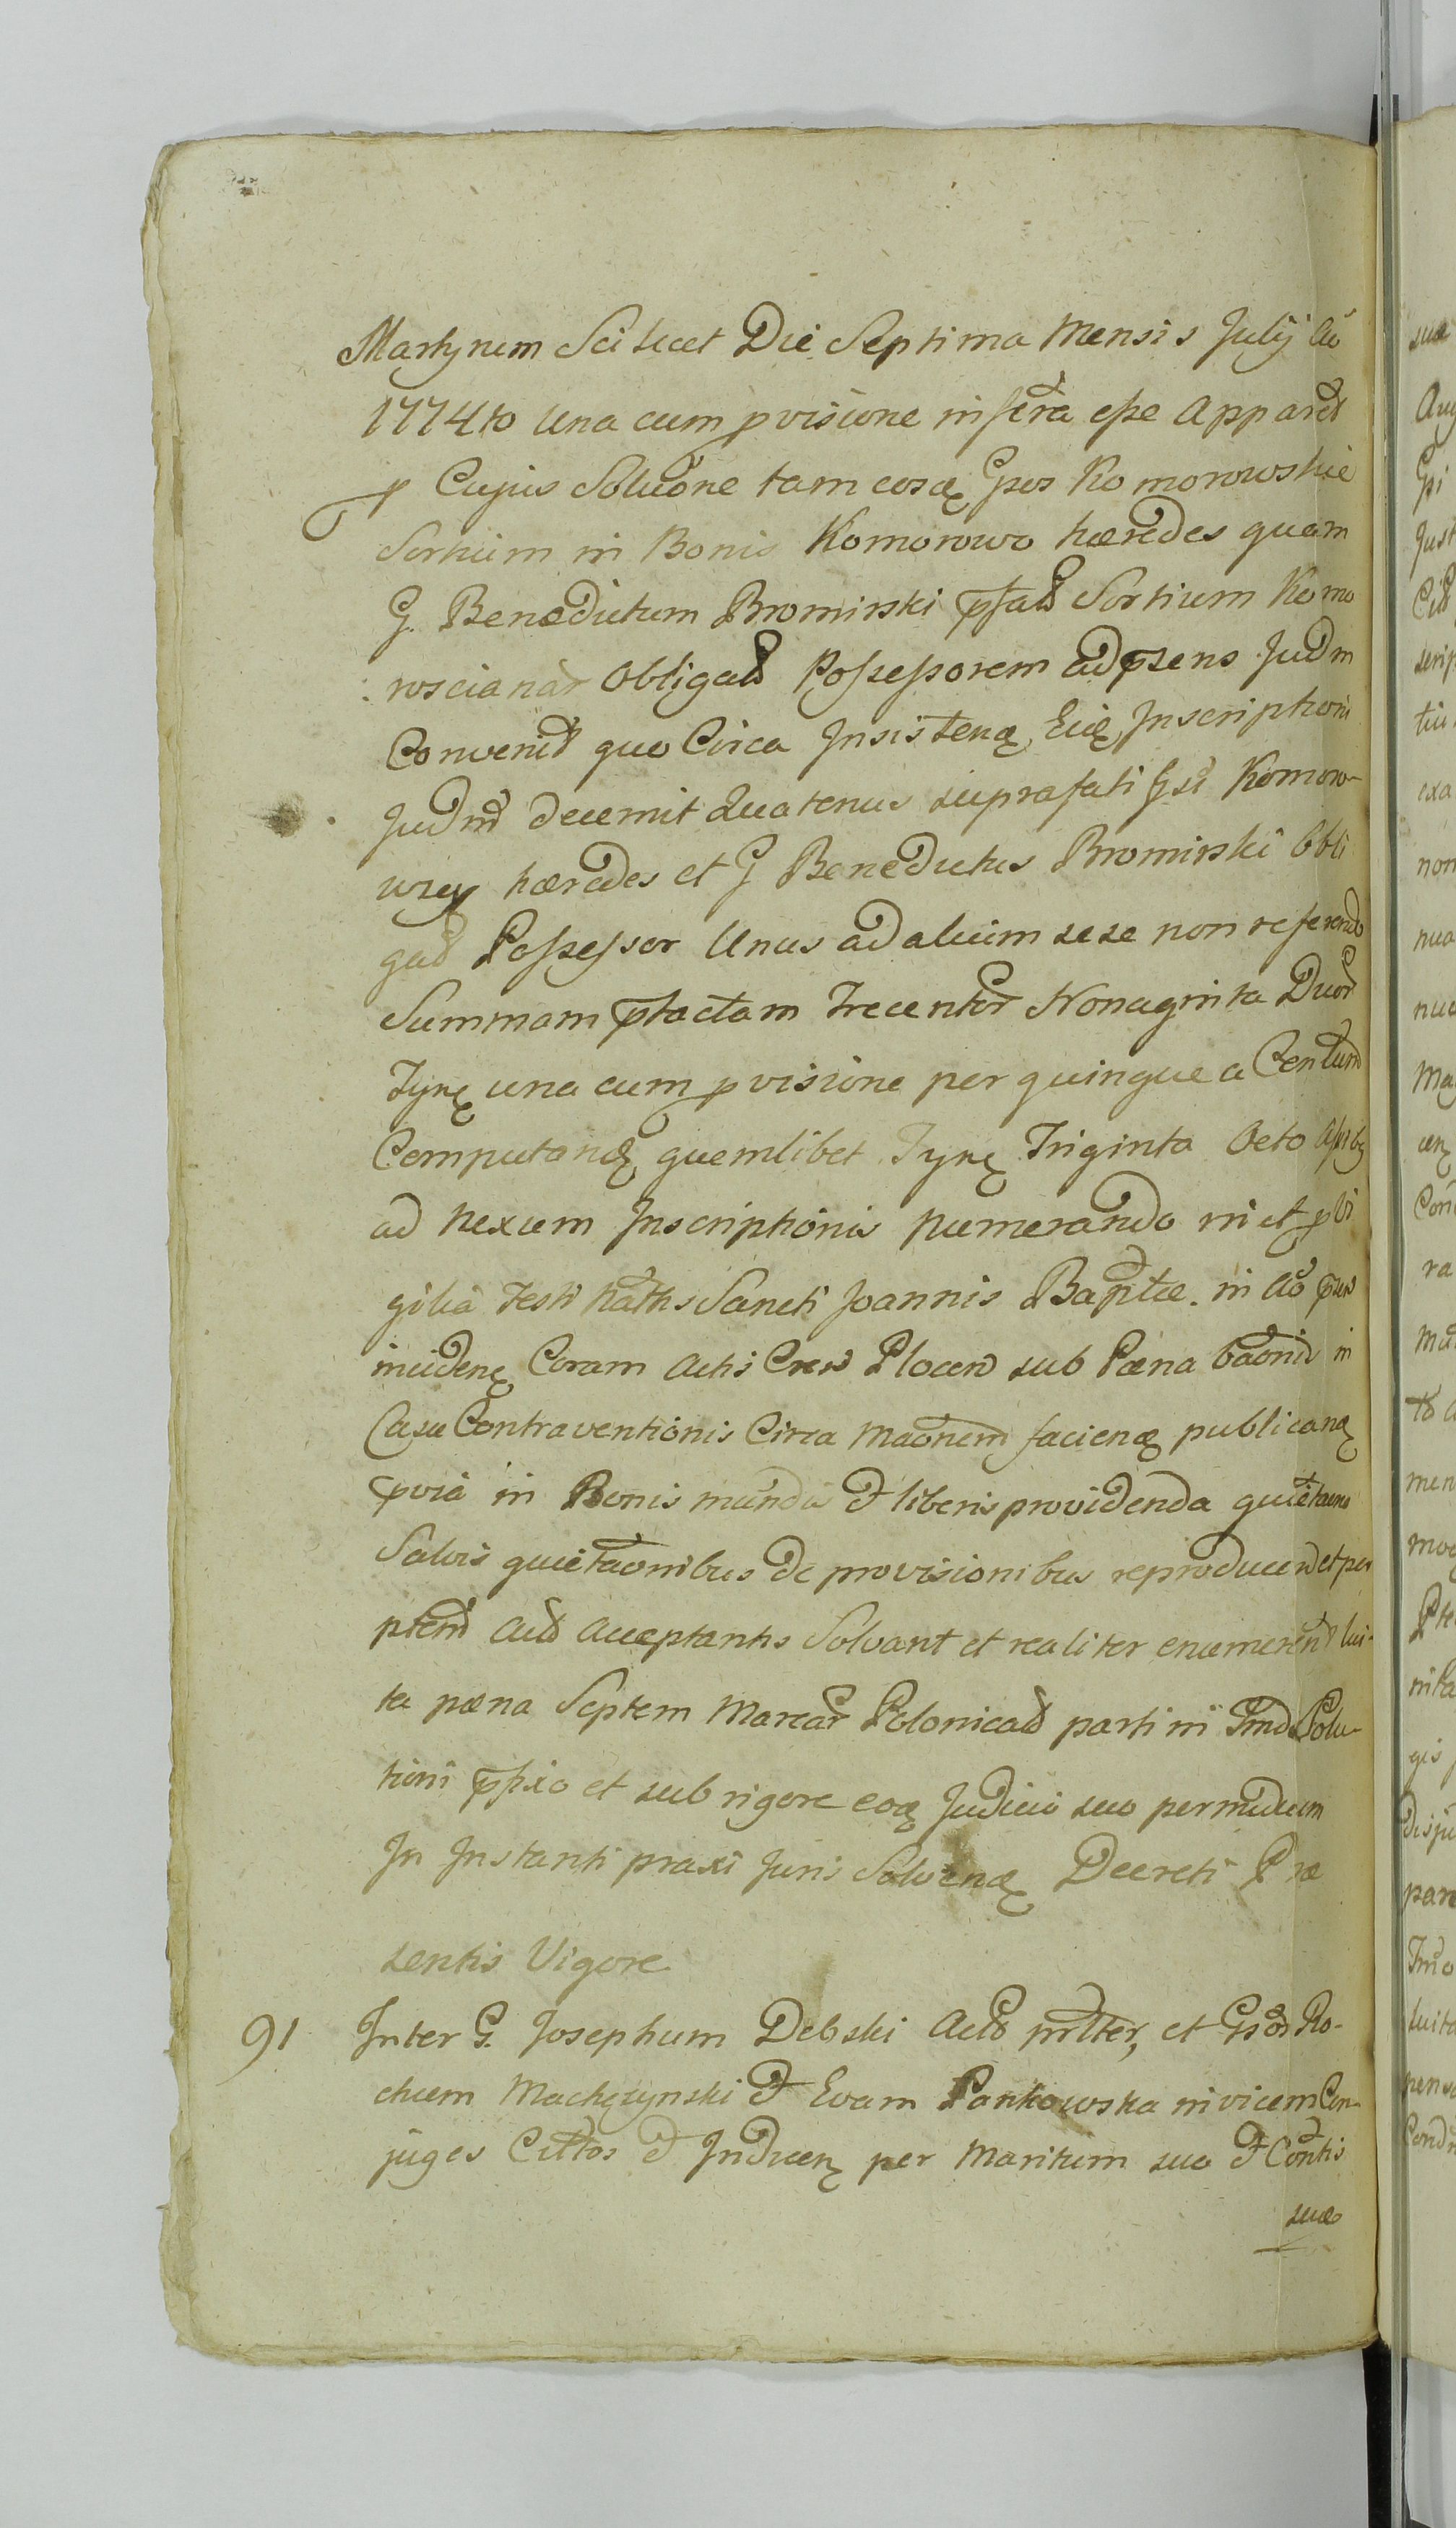 Martyrum Scilicet Die Septima Mensis Julij Ao
1774to una cum pvisione inferta esse Apparet
p Cujus Solutõne tam eosdẽ Gsos Komorowskie
Sortium in Bonis Komorowo hæredes quam
G. Benedictum Bromirski pfatõ Sortium Komo
:roscianar Obligatõ Possessorem ad psens Judm
Convenit quo Circa Insistenḍ Eidẽ Inscriptioni
Judm decernit Quatenus suprafati Gsi Komoro-
wscy hæredes et G Benedictus Bromirski Obli
gatõ Possessor Unus ad alium sese non referendo
Summam ptactam Trecentor Nonaginta Duor
Tynf una cum pvisione per quinque a Centum
Computand quemlibet Tynf Triginta Octo assibꝫ
ad nexum Inscriptionis numerando in et p Vi
gilia Festi Natlis Sancti Joannis Baptæ. in Ao pnti
inciden Coram Actis Cren Plocen sub Pæna baonis in
Casu Contraventionis Circa maõnem faciend publicand
pvia in Bonis mundis et liberis providenda quietaõne
Salvis quietaõnibus de provisionibus reproducend et per
ptem Actõ Acceptantis Solvant et realiter enumerent lui-
ta pæna Septem Marcar Polonicaliũ parti in Tmo Solu-
tioni pfixo et sub rigore eodẽ Judicio suo per mutuum
In Instanti praxi Juris Solvend Decreti Præ
sentis Vigore
91 Inter G. Josephum Debski Actõ pnlter, et Gsos Ro-
chum Machczynski et Evam Pankowska invicem Con-
juges Cittos et Inducen per Maritum suo et Contis
suæ